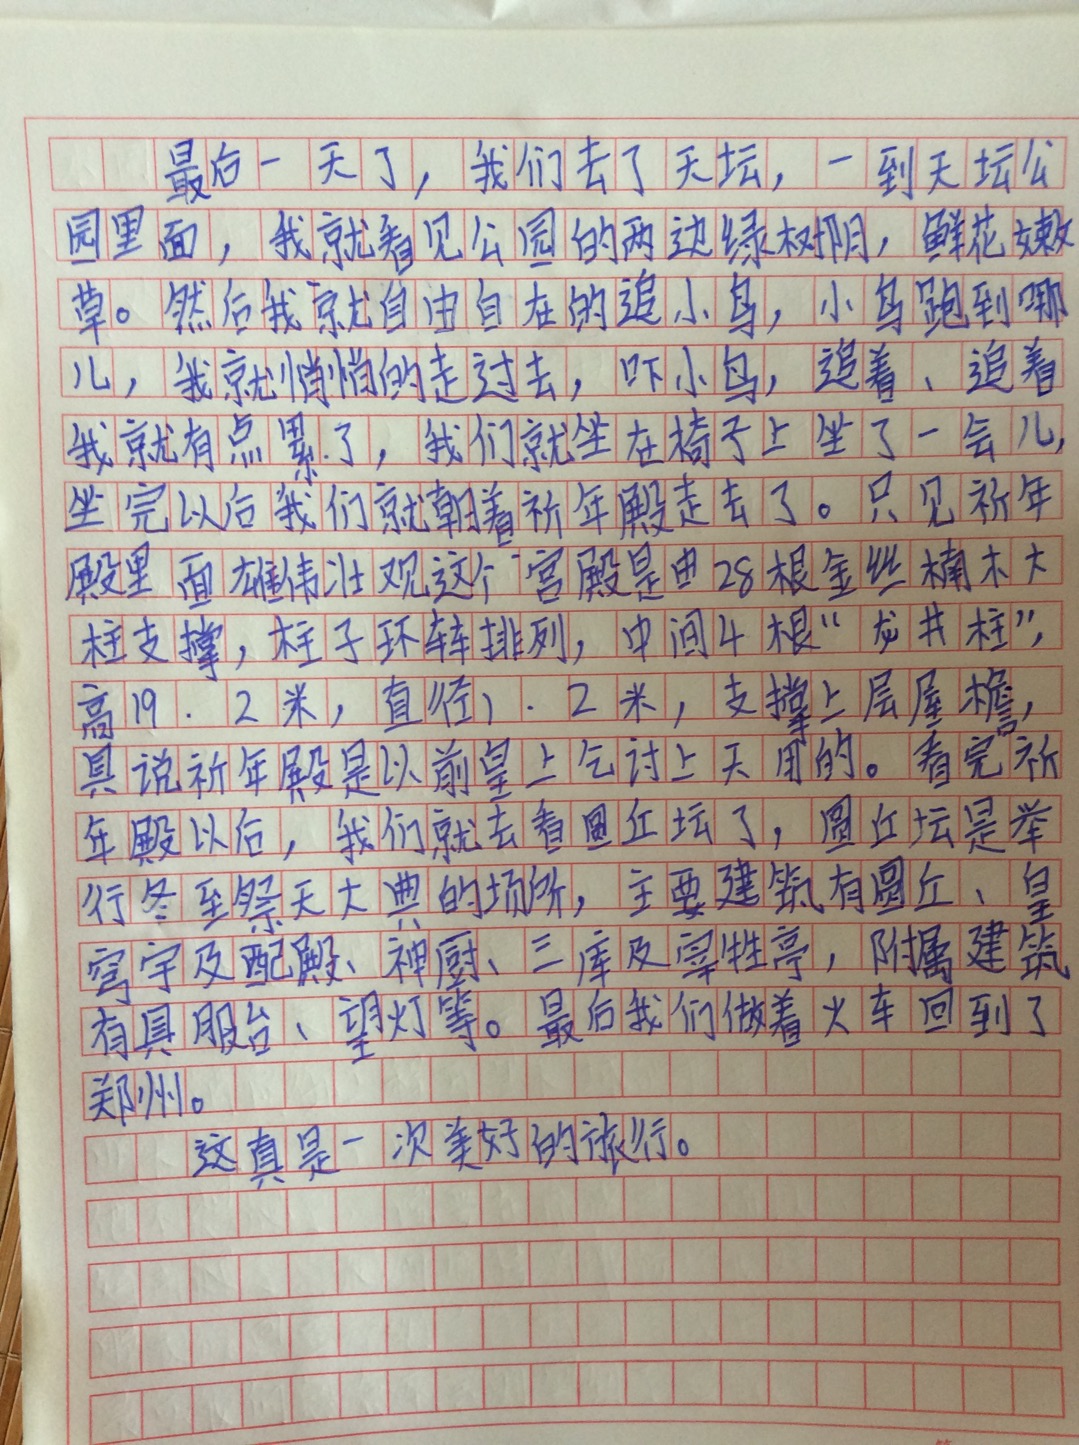 最后一天了，我们去了天坛，一到天坛公
园里面，我就看见公园的两边绿树阴，鲜花嫩
草。然后我就自由自在的追小鸟，小鸟跑到哪
儿，我就悄悄的走过去，吓小鸟，追着、追着
我就有点累了，我们就坐在椅子上坐了一会儿，
坐完以后我们就朝着祈年殿走去了。只见祈年
殿里面雄伟壮观这个宫殿是由28根金丝楠木大
柱支撑，柱子环转排列，中间4根“龙井柱”，
高19.2米，直径1.2米，支撑上层屋檐，
具说祈年殿是以前皇上乞讨上天用的。看完祈
年殿以后，我们就去看圆丘坛了，圆丘坛是举
行冬至祭天大典的场所，主要建筑有圆丘、皇
穹宇及配殿、神厨、三库及宰牲亭，附属建筑
有具服台、望灯等。最后我们做着火车回到了
郑州。
这真是一次美好的旅行。